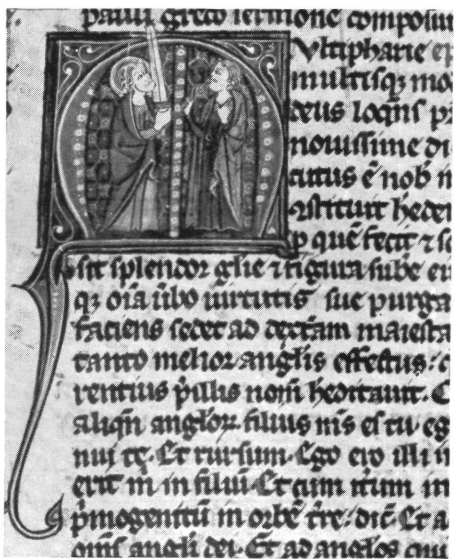 pauli greco sermone composuit
Vltipharie ep
multisq; mo
deus loqns p
nouissime di
cutus ē nob in
ꝯstituit heden
p quē fecit ⁊ se
sit splendor glie ⁊ figura sube ei
q; oīa ūbo uirtutis sue purga
faciens sedet ad dextam maiesta
tanto melior anglis effectus: 
rentius p̄illis nom̄ heditauit. C
aliqn anglor. filius m̄s es tu eg
nui te. Et rursum. Ego ero illi in
erit m̄ in filiū. Et cum itm in
p̄mogenitū in orbē tre: dic̄. Et a
om̄s angli dei. Et ad anglos qui